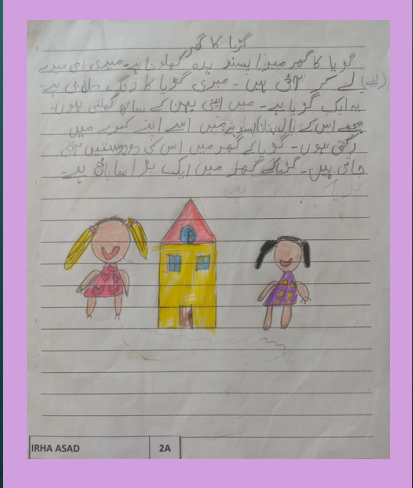 گڑیا کا گھر
گڑیا کا گھر میرا پسندیدہ کھلونا ہے۔ میری امی میرے
(لیے) لے کر آئی ہیں۔ میری گڑیا کا رنگ ہے۔
یہ ایک گڑیا ہے۔ میں اپنی بہن کے ساتھ کھیلتی ہوں۔
مجھے اس کے بال بنانا پسند ہے میں اسے اپنے کمرے میں
رکھتی ہوں۔ گڑیا کے گھر میں اس کی دو دوستیں آتی
جاتی ہیں۔ گڑیا کے گھر میں ایک بڑا سا باغ ہے۔
IRHA ASAD 2A